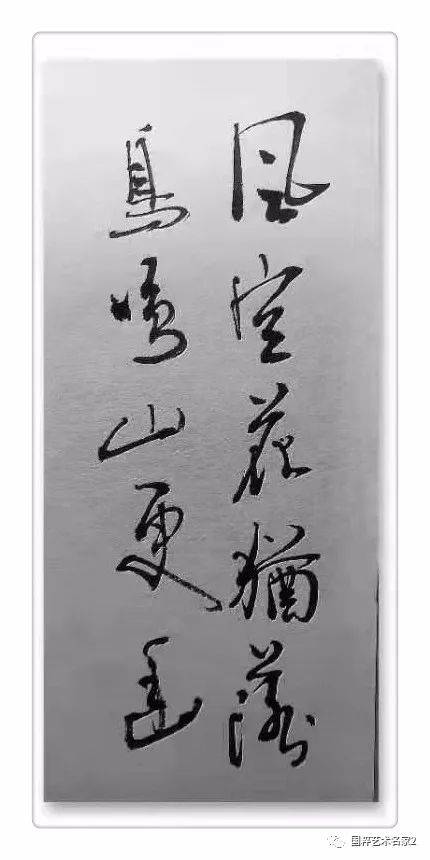 風定花猶落
鳥鳴山更幽
国粹艺术名家2